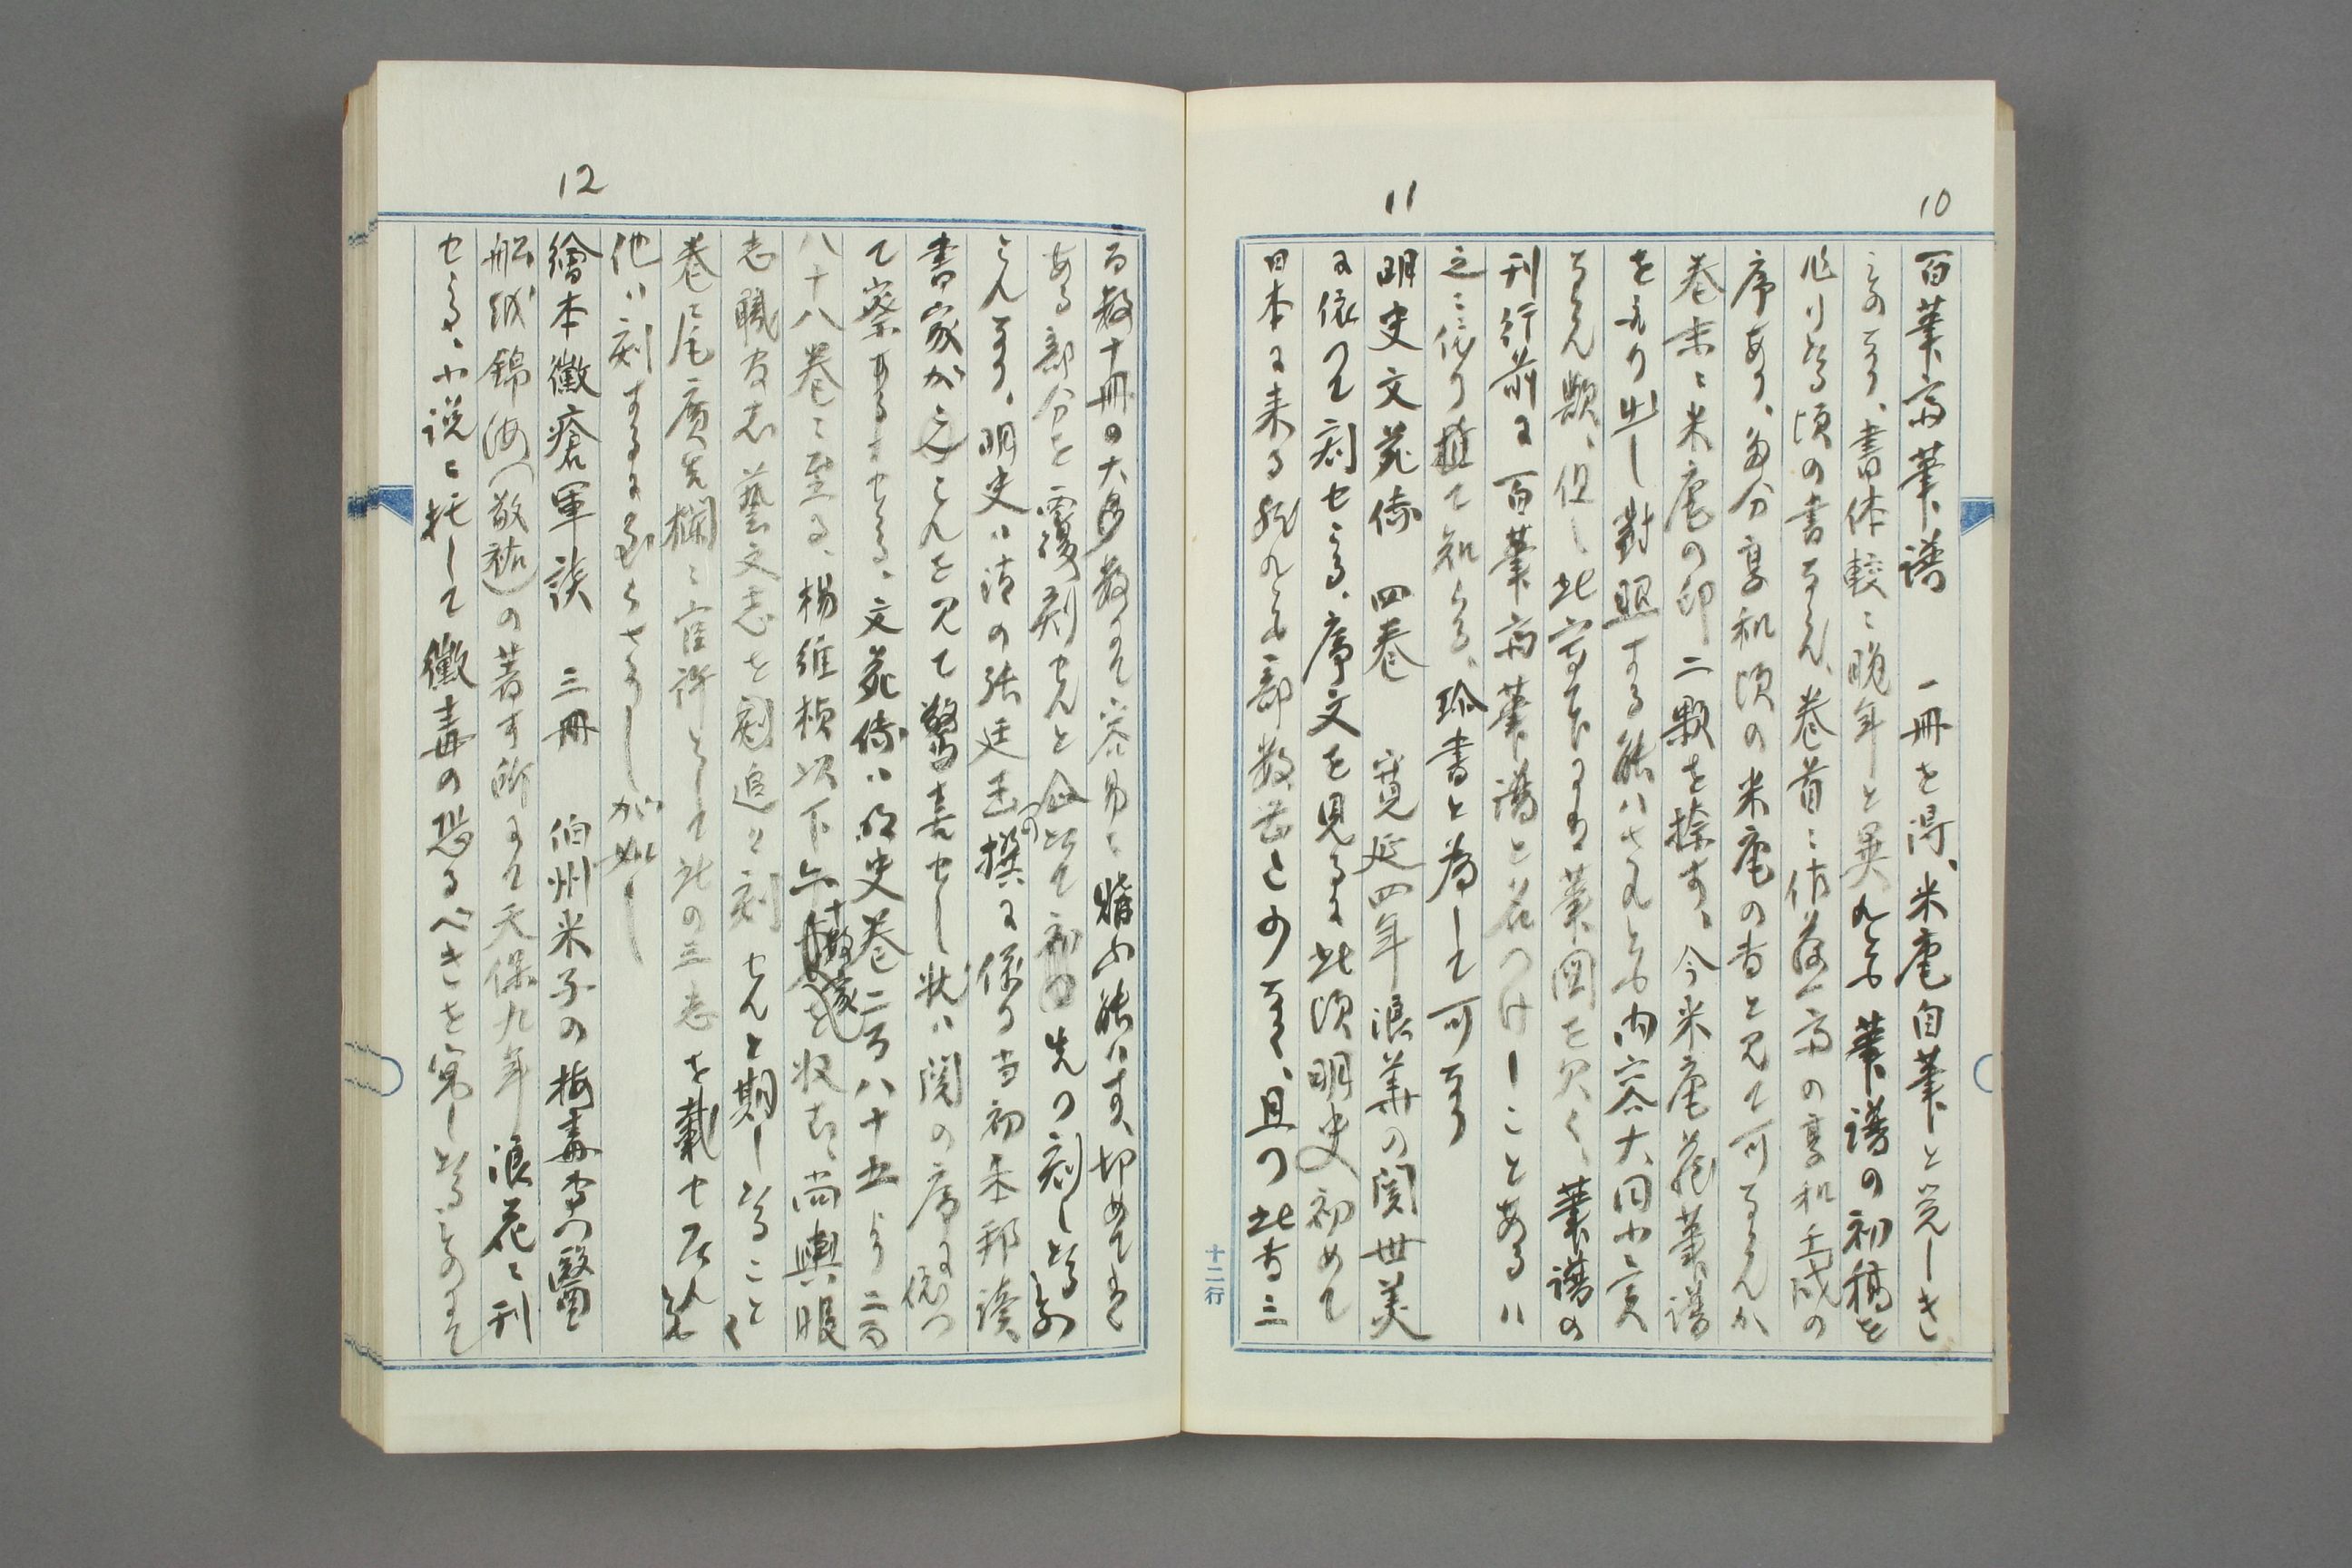 10
百筆斎筆譜 一冊を得、米庵自筆と覚しき
ものなり、書体較々晩年と異れども筆譜の初稿を
作りたる頃の書ならん、巻首に佐藤一斎の享和壬戌の
序あり、多分享和頃の米庵の書と見て可ならんか
巻末に米庵の印二顆を捺す、今米庵蔵筆譜
を取り出し対照する能はざれども内容大同小異
ならん歟、但し此写本には筆図を欠く、筆譜の
刊行前に百筆斎筆譜と名つけしことあるハ
之に依り植て知らる、珍書と為して可なり
11
明史文苑伝 四巻 寛延四年浪華の関世美
に依つて刻せらる、序文を見るに此頃明史初めて
日本に来る然れども部数甚と少なく、且つ此書三
十二行
百数十冊の大多数にて容易に購ふ能はす、切めては
ある部分を覆刻せんと企てゝ初め先つ刻したるか
これなり、明史ハ清の張廷玉の撰に係る当初本邦読
書家が之れを見て驚喜せし状ハ関の序に依つ
て察するせらる、文苑伝ハ明史巻二百八十五より二百
八十八巻に至る、楊維楨以下十数家を収む、尚輿服
志職官志藝文志を刻追々刻せんと期したること
巻尾広告欄に官許として此の三志を載せ居れ
他ハ刻するに至らさりしが如し
12
繪本黴瘡軍談 三冊 伯州米子の梅毒専門醫
船越錦海(敬祐)の著す所にて天保九年浪花に刊
せらる、小説に托して黴毒の恐るべきを寓したるものにて